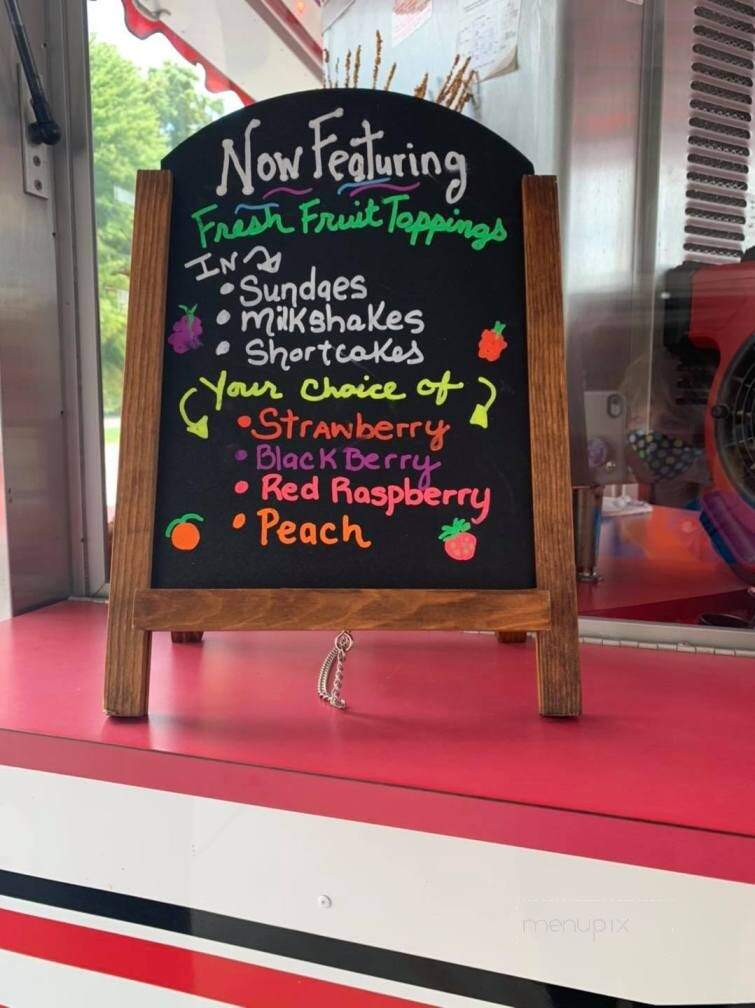 Now Featuring
Fresh Fruit Toppings
IN
• Sundaes
• Milkshakes
• Shortcakes
Your choice of
• Strawberry
• BlackBerry
• Red Raspberry
• Peach
menupix